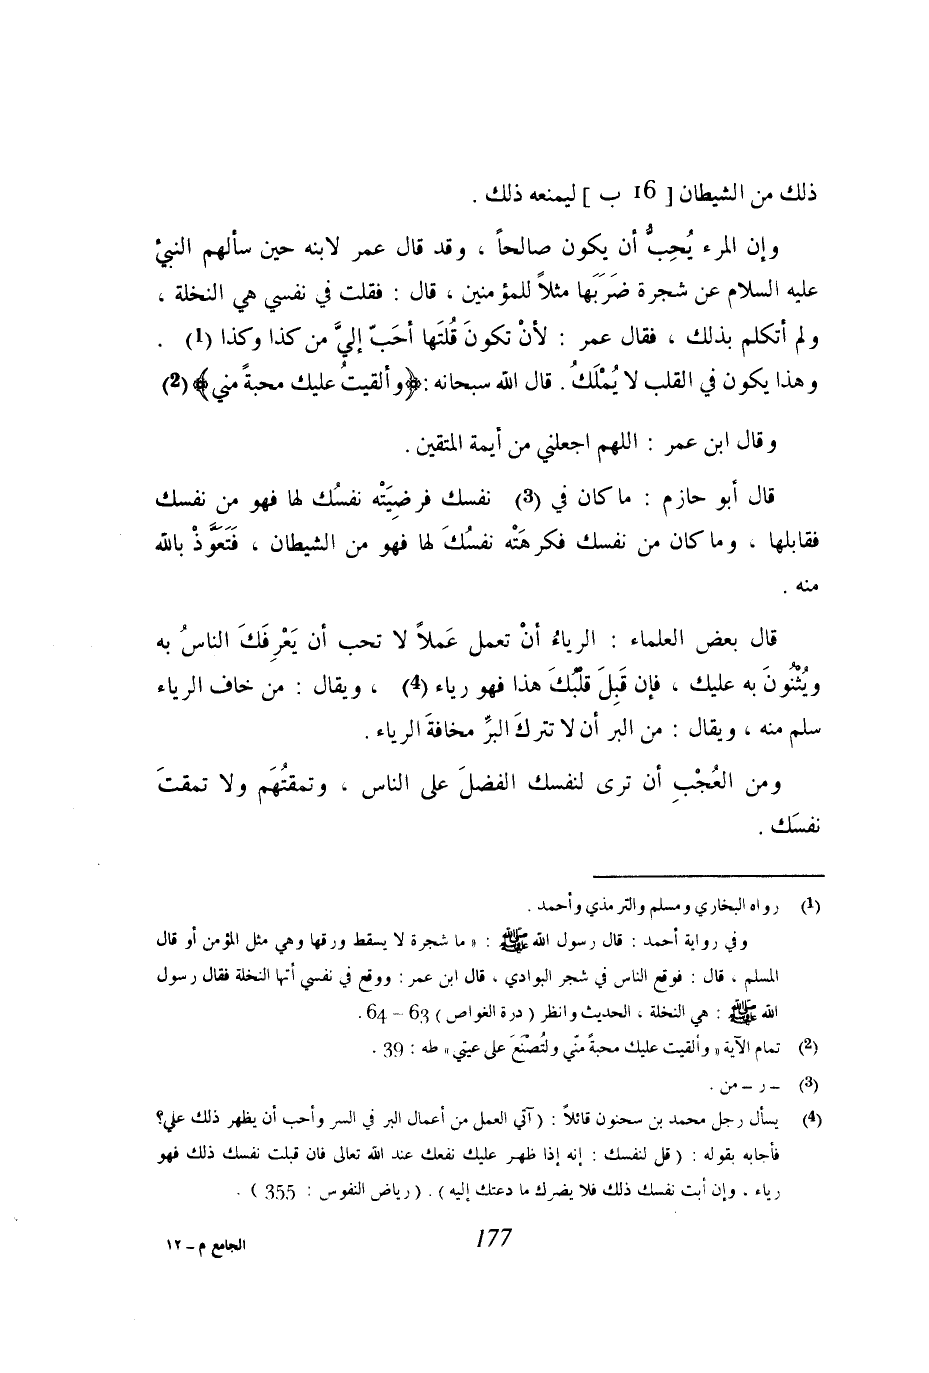 ذلك من الشيطان [ 16 ب ] ليمنعه ذلك .
وإن المرء يُحِبُّ أن يكون صالحاً ، وقد قال عمر لابنه حين سألهم النبيُ
عليه السلام عن شجرة ضَرَبَها مثلاً للمؤمنين ، قال : فقلت في نفسي هي النخلة ،
ولم أتكلم بذلك ، فقال عمر : لأنْ تكونَ قُلتَها أحَبّ إليَّ من كذا وكذا (1) .
وهذا يكون في القلب لا يُمْلَكُ . قال الله سبحانه : ﴿وألقيتُ عليك محبةً مني﴾ (2)
وقال ابن عمر : اللهم اجعلني من أيمة المتقين .
قال أبو حازم : ما كان في (3) نفسك فرضِيَتْه نفسُك لها فهو من نفسك
فقابلها ، وما كان من نفسك فكرهَتْه نفسُكَ لها فهو من الشيطان ، فَتَعَوَّذْ بالله
منه .
قال بعض العلماء : الرياءُ أنْ تعمل عَملاً لا تحب أن يَعْرِفَكَ الناسُ به
ويُثْنُونَ به عليك ، فإن قَبِلَ قلبُكَ هذا فهو رياء (4) ، ويقال : من خاف الرياء
سلم منه ، ويقال : من البر أن لا تتركَ البرَّ مخافةَ الرياء .
ومن العُجْبِ أن ترى لنفسك الفضلَ على الناس ، وتمقتُهَم ولا تمقتَ
نفسَك .
(1) رواه البخاري ومسلم والترمذي وأحمد .
وفي رواية أحمد : قال رسول الله ﷺ : « ما شجرة لا يسقط ورقها وهي مثل المؤمن أو قال
المسلم ، قال : فوقع الناس في شجر البوادي ، قال ابن عمر : ووقع في نفسي أنها النخلة فقال رسول
الله ﷺ : هي النخلة ، الحديث وانظر ( درة الغواص ) 63 – 64 .
(2) تمام الآية « وألقيت عليك محبةً منّي ولتُصْنَعَ على عيني » طه : 39 .
(3) – ر – من .
(4) يسأل رجل محمد بن سحنون قائلاً : ( آتي العمل من أعمال البر في السر وأحب أن يظهر ذلك علي؟
فأجابه بقوله : ( قل لنفسك : إنه إذا ظهر عليك نفعك عند الله تعالى فان قبلت نفسك ذلك فهو
رياء ، وإن أبت نفسك ذلك فلا يضرك ما دعتك إليه ) . ( رياض النفوس : 355 ) .
177
الجامع م – ١٢